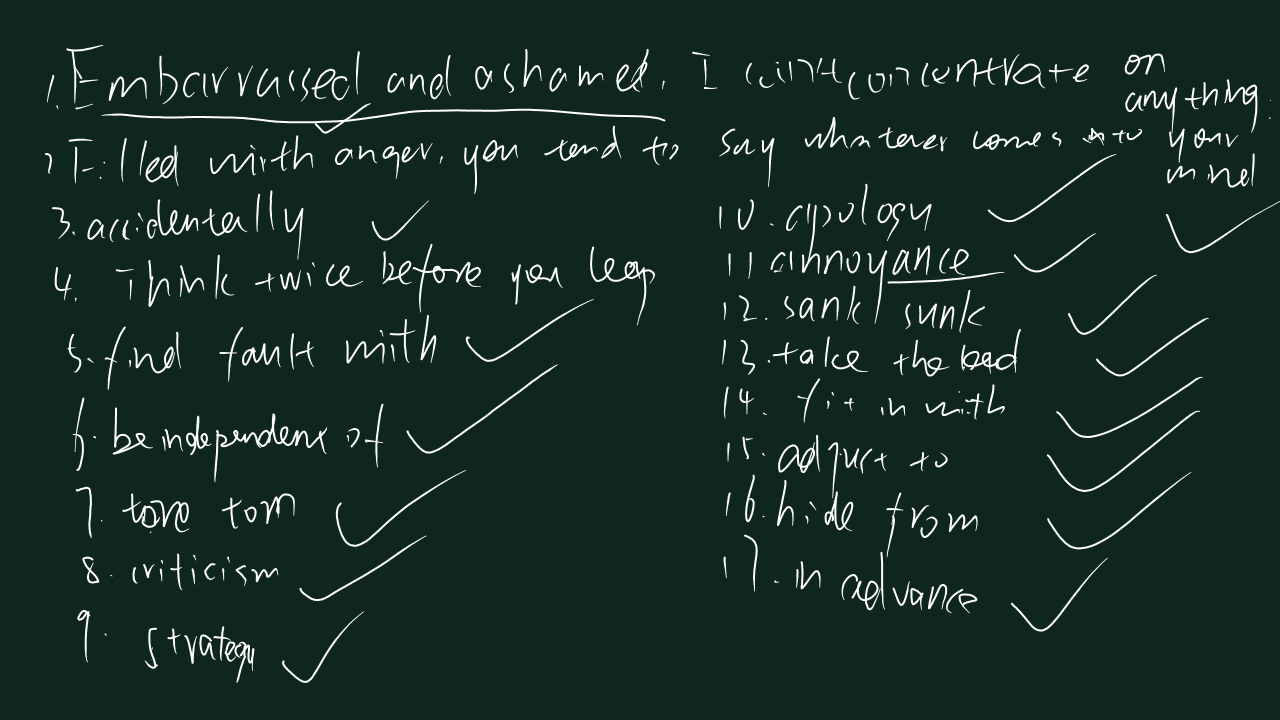 1. Embarrassed and ashamed, I can't concentrate on anything.
2 Filled with anger, you tend to say whatever comes into your mind
3. accidentally
4. Think twice before you leap
5. find fault with
6. be independent of
7. tore torn
8. criticism
9. strategy
10. apology
11 annoyance
12. sank / sunk
13. take the lead
14. fit in with
15. adjust to
16. hide from
17. in advance